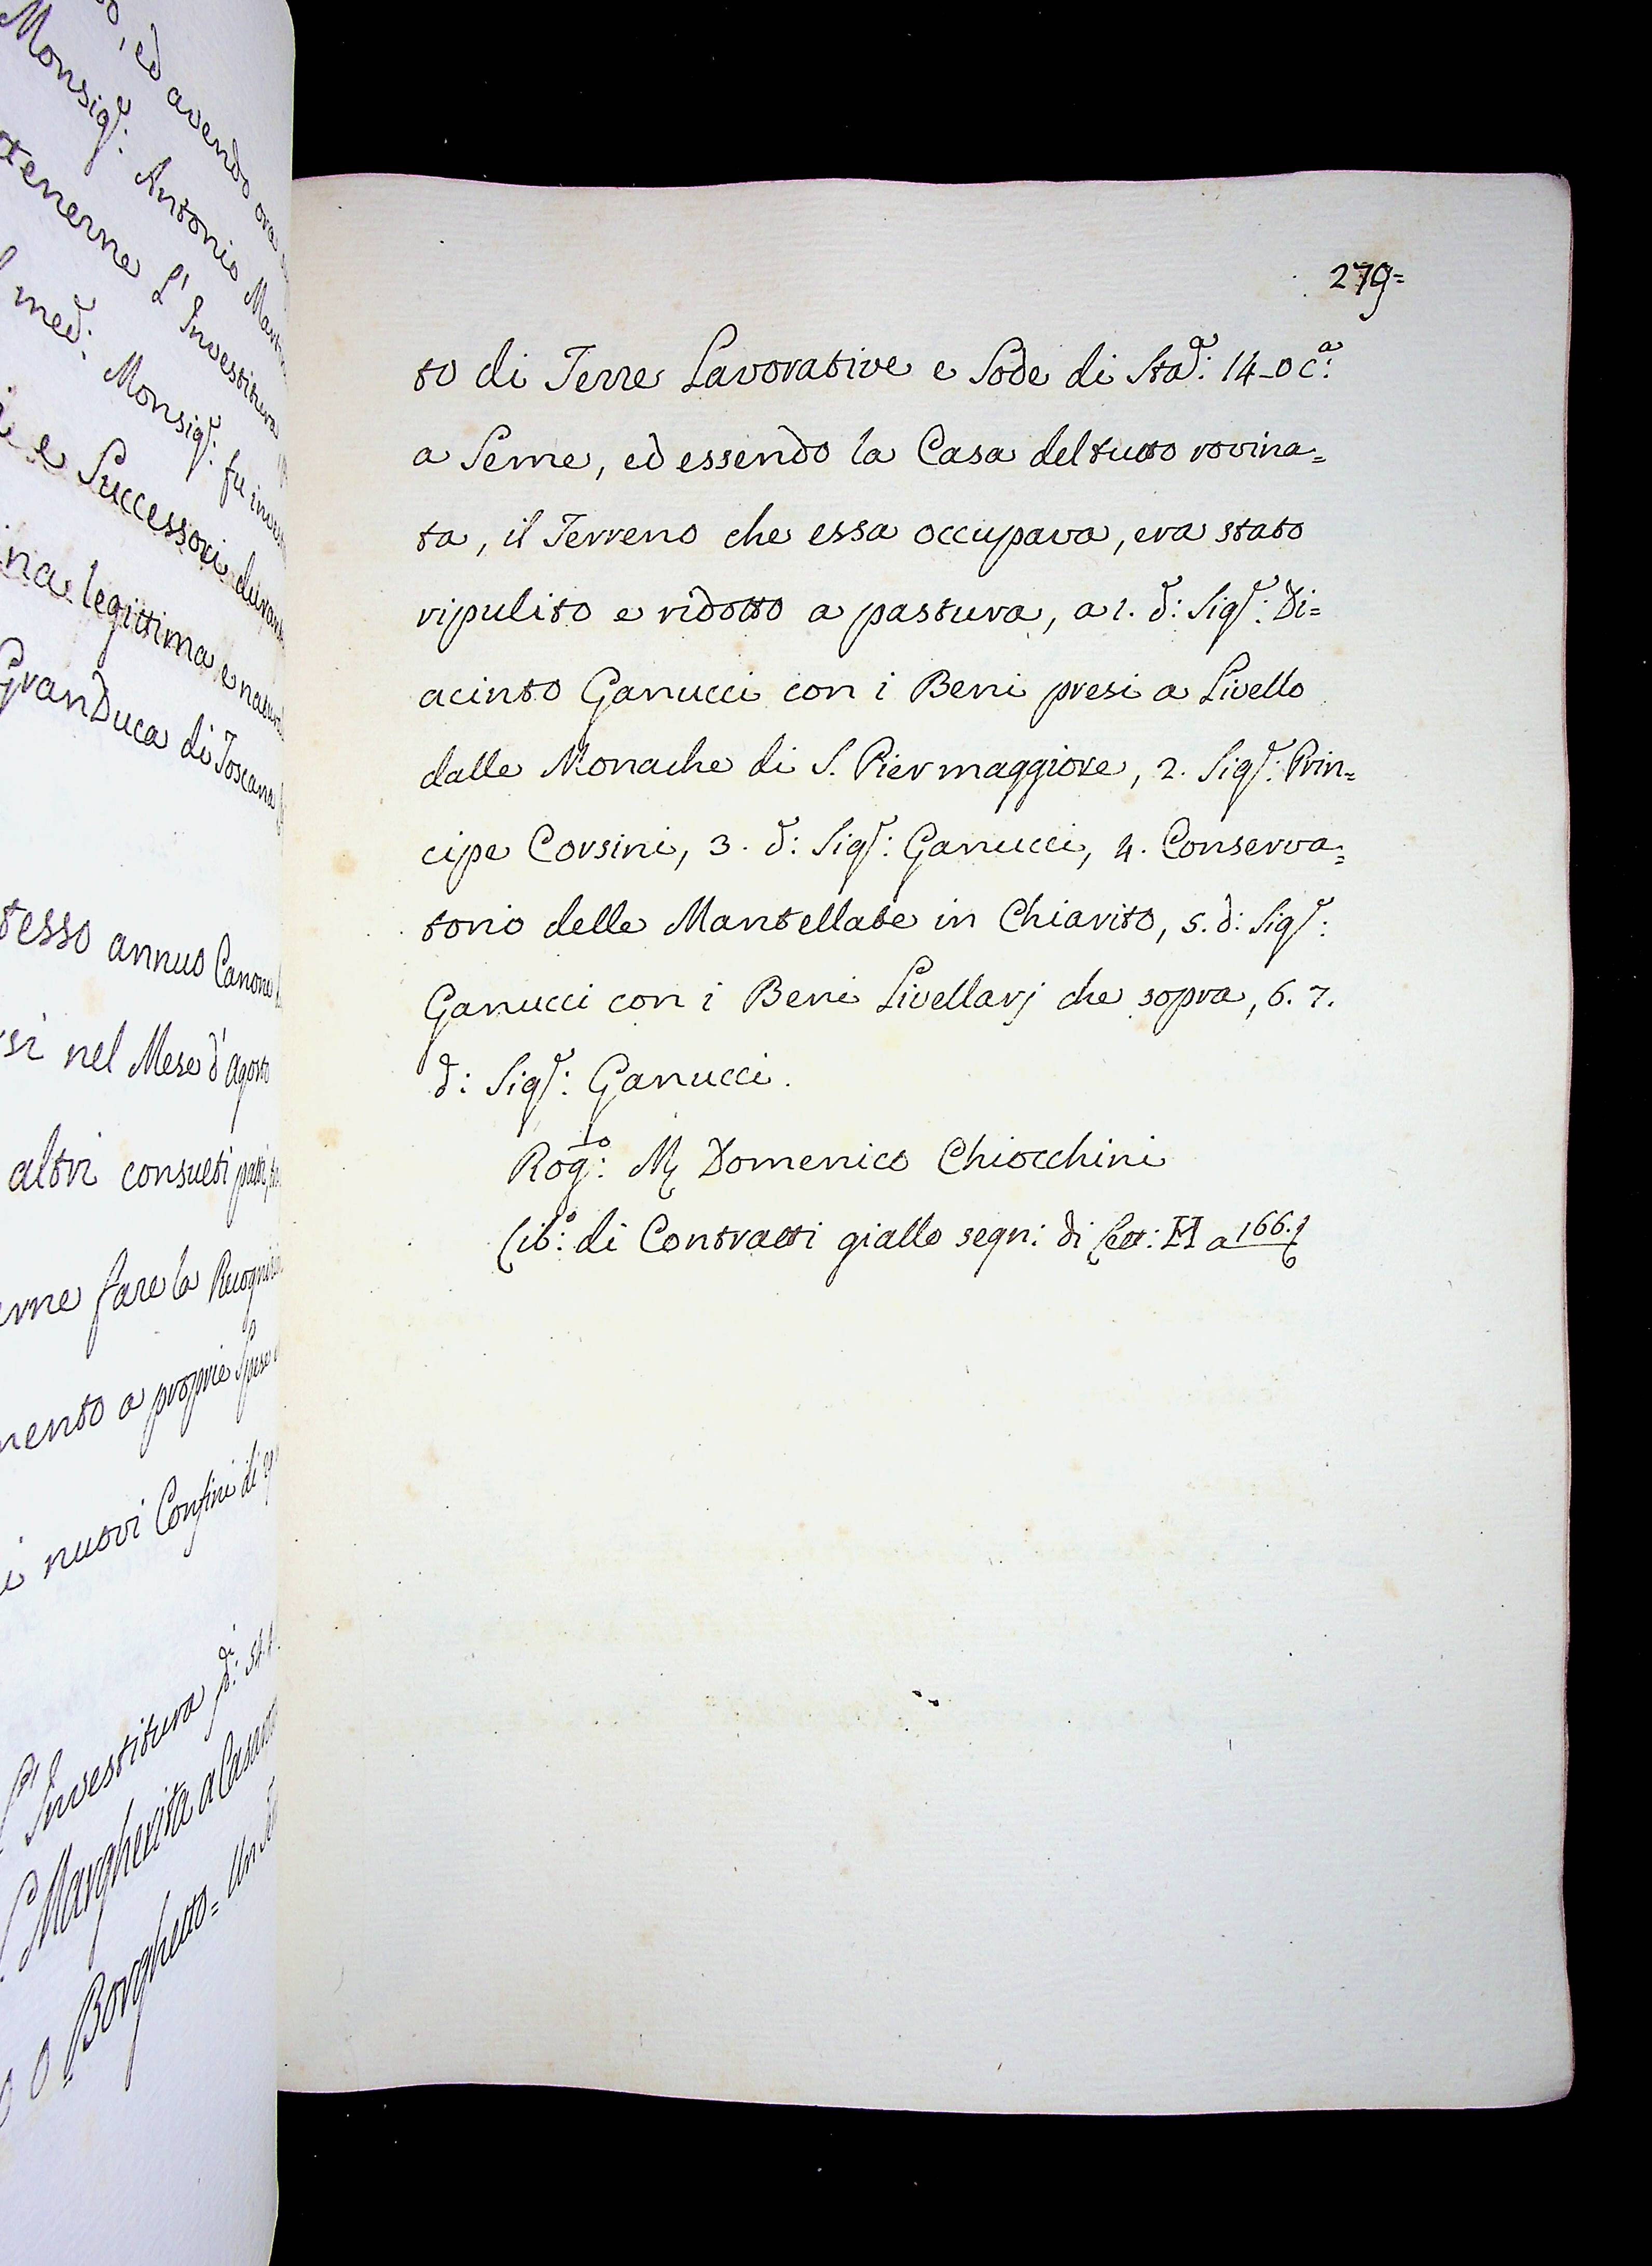 , ed avendo ora
Monsig.r: Antonio
ottenerne l'Investitura
med.: Monsig.r: fu
e Successori
legittima e
GranDuca di Toscana
annuo Canone
nel Mese d'Agosto
altri consueti patti
fare la
a proprie Spese
nuovi Confini di
L'Investitura
S. Margherita a
o Borghetto = Un
279=
to di Terre Lavorative e Sode di Sta.a: 14 - 0 c.a:
a Seme, ed essendo la Casa deltutto rovina=
ta, il Terreno che essa occupava, era stato
ripulito e ridotto a pastura, a 1. d.: Sig.r: Di=
acinto Ganucci con i Beni presi a Livello
dalle Monache di S. Piermaggiore, 2. Sig.r: Prin=
cipe Corsini, 3. d.: Sig.r: Ganucci, 4. Conserva=
torio delle Mantellate in Chiarito, 5. d: Sig.r:
Ganucci con i Beni Livellarj che sopra, 6. 7.
d: Sig.r: Ganucci.
Rog.to: M Domenico Chiocchini
Lib.o: di Contratti giallo segn: di Lett: H a 166.